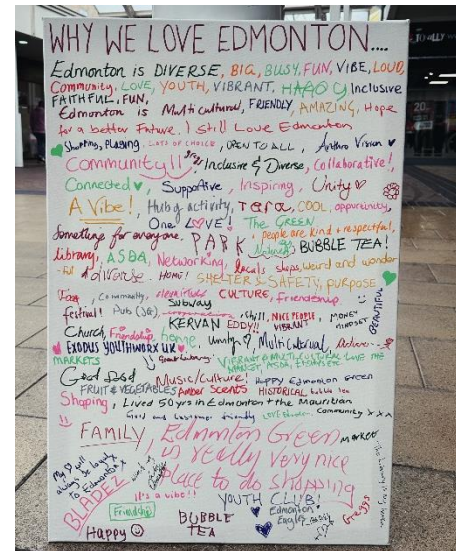 WHY WE LOVE EDMONTON....
Edmonton is DIVERSE, BIG, BUSY, FUN, VIBE, LOUD,
Community, LOVE, YOUTH, VIBRANT. HAPPY Inclusive
FAITHFUL, FUN,
Edmonton is Multicultural, FRIENDLY, AMAZING, Hope
for a better Future. I still Love Edmonton
Shopping, PLAYING, LOTS OF CHOICE, OPEN TO ALL, Anthro Vision
Community!! great Inclusive & Diverse, Collaborative!
Connected, Supportive, Inspiring, Unity
A Vibe!, Hub of activity, COOL, opportunity,
One LOVE! The GREEN
Something for everyone, PARK people are kind + respectful,
BUBBLE TEA!
library, ASDA, Networking, locals shops, weird and wonder
-ful diverse. HOME! SHELTER & SAFETY, PURPOSE
Community, CULTURE, Friendship
BEAUTIFUL
festival! Pub Subway Chill, NICE PEOPLE, MONEY
MINDSET
KERVAN EDDY!! VIBRANT
Church, Friendship, home, Unity Multicultural,
EXODUS YOUTHWORX UK
MARKETS VIBRANT & MULTICULTURAL LOVE THE
MARKET, ASDA,
Good food Music/Culture! Happy Edmonton Green
FRUIT & VEGETABLES Amber Scents HISTORICAL
Shopping, Lived 50 yrs in Edmonton + the Mauritian
Good and customer friendly LOVE Edmonton. Community xxx
FAMILY, Edmonton Green MARKET
is really very nice
place to do shopping
My will
always be loyal
to Edmonton
BLADEZ it's a vibe!! YOUTH CLUB!
Friendship Edmonton
Eagles
Greggs
Happy BUBBLE
TEA
20